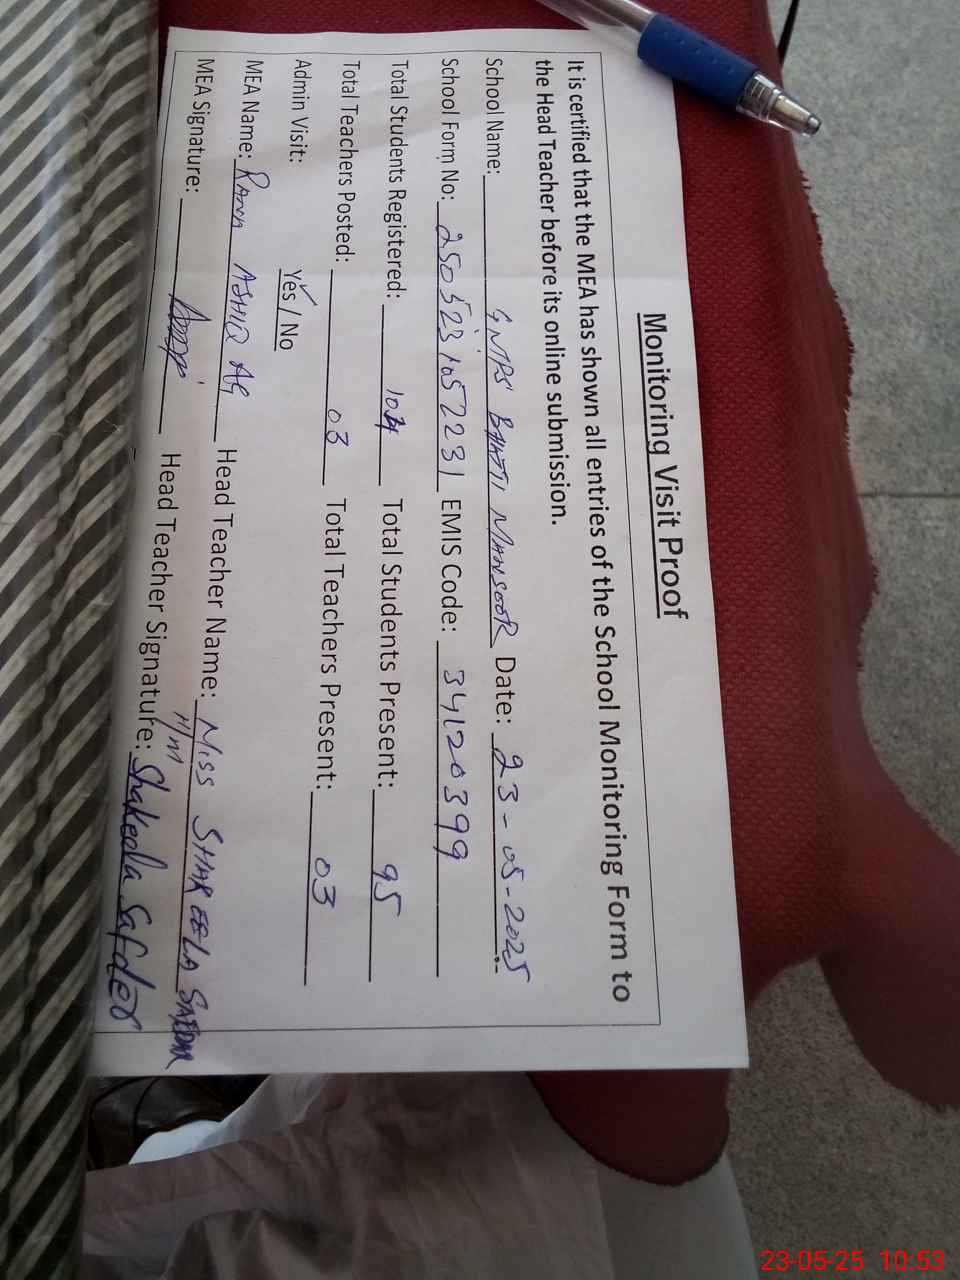 Monitoring Visit Proof
It is certified that the MEA has shown all entries of the School Monitoring Form to
the Head Teacher before its online submission.
School Name: GMPS BHATTI MANSOOR Date: 23-05-2025
School Form No: 2505231052231 EMIS Code: 34120399
Total Students Registered: 104 Total Students Present: 95
Total Teachers Posted: 03 Total Teachers Present: 03
Admin Visit: Yes / No
MEA Name: RANA ASHIQ Ali Head Teacher Name: Miss SHAKEELA SAFDAR
MEA Signature: Head Teacher Signature: H/M Shakeela Safder
23-05-25 10:53